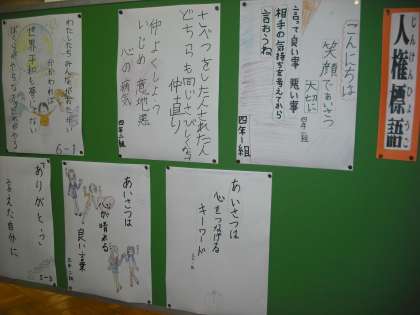 人権標語
じんけんひょうご
こんにちは
笑顔であいさつ
大切に
四年一組
言って良い事 悪い事
相手の気持ちを考えてから
言おうね
四年一組
どちらも同じさびしい
仲直り
仲よくしよう
いじめ 意地悪
心の病気
四年二組
わたしたちみんながおたがい
分かりあえば
世界平和も夢じゃない
6-1
あいさつは
心をつなげる
キーワード
あいさつは
心が晴れる
良い言葉
ありがとう
言えた自分に